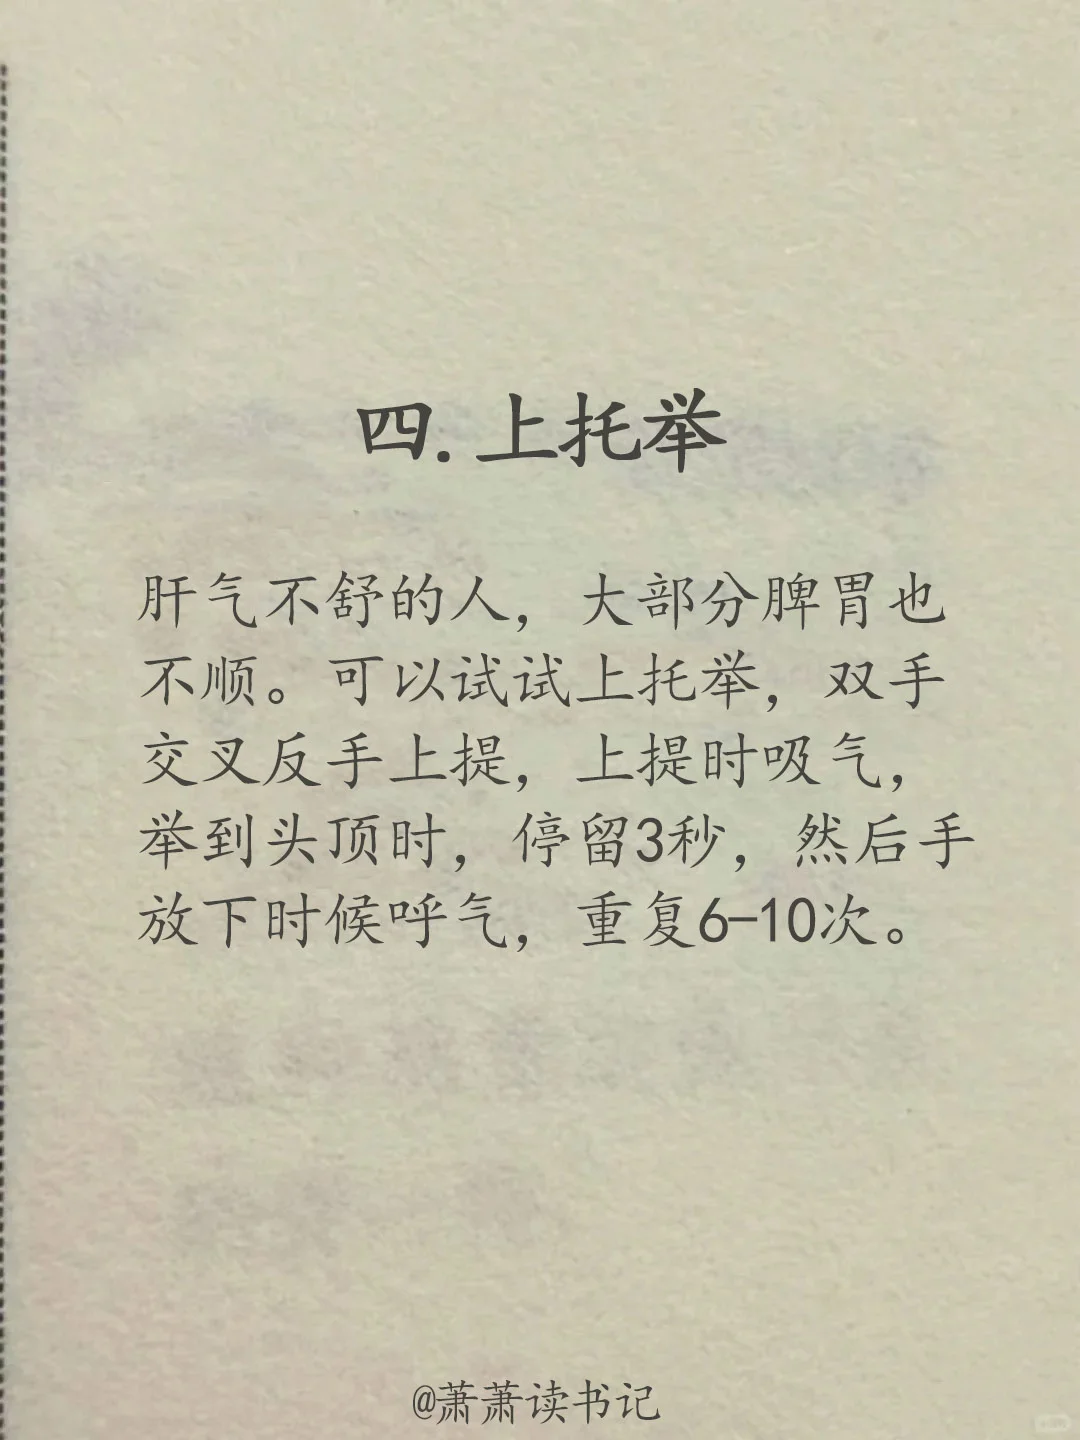 四.上托举
肝气不舒的人，大部分脾胃也
不顺。可以试试上托举，双手
交叉反手上提，上提时吸气，
举到头顶时，停留3秒，然后手
放下时候呼气，重复6-10次。
@萧萧读书记